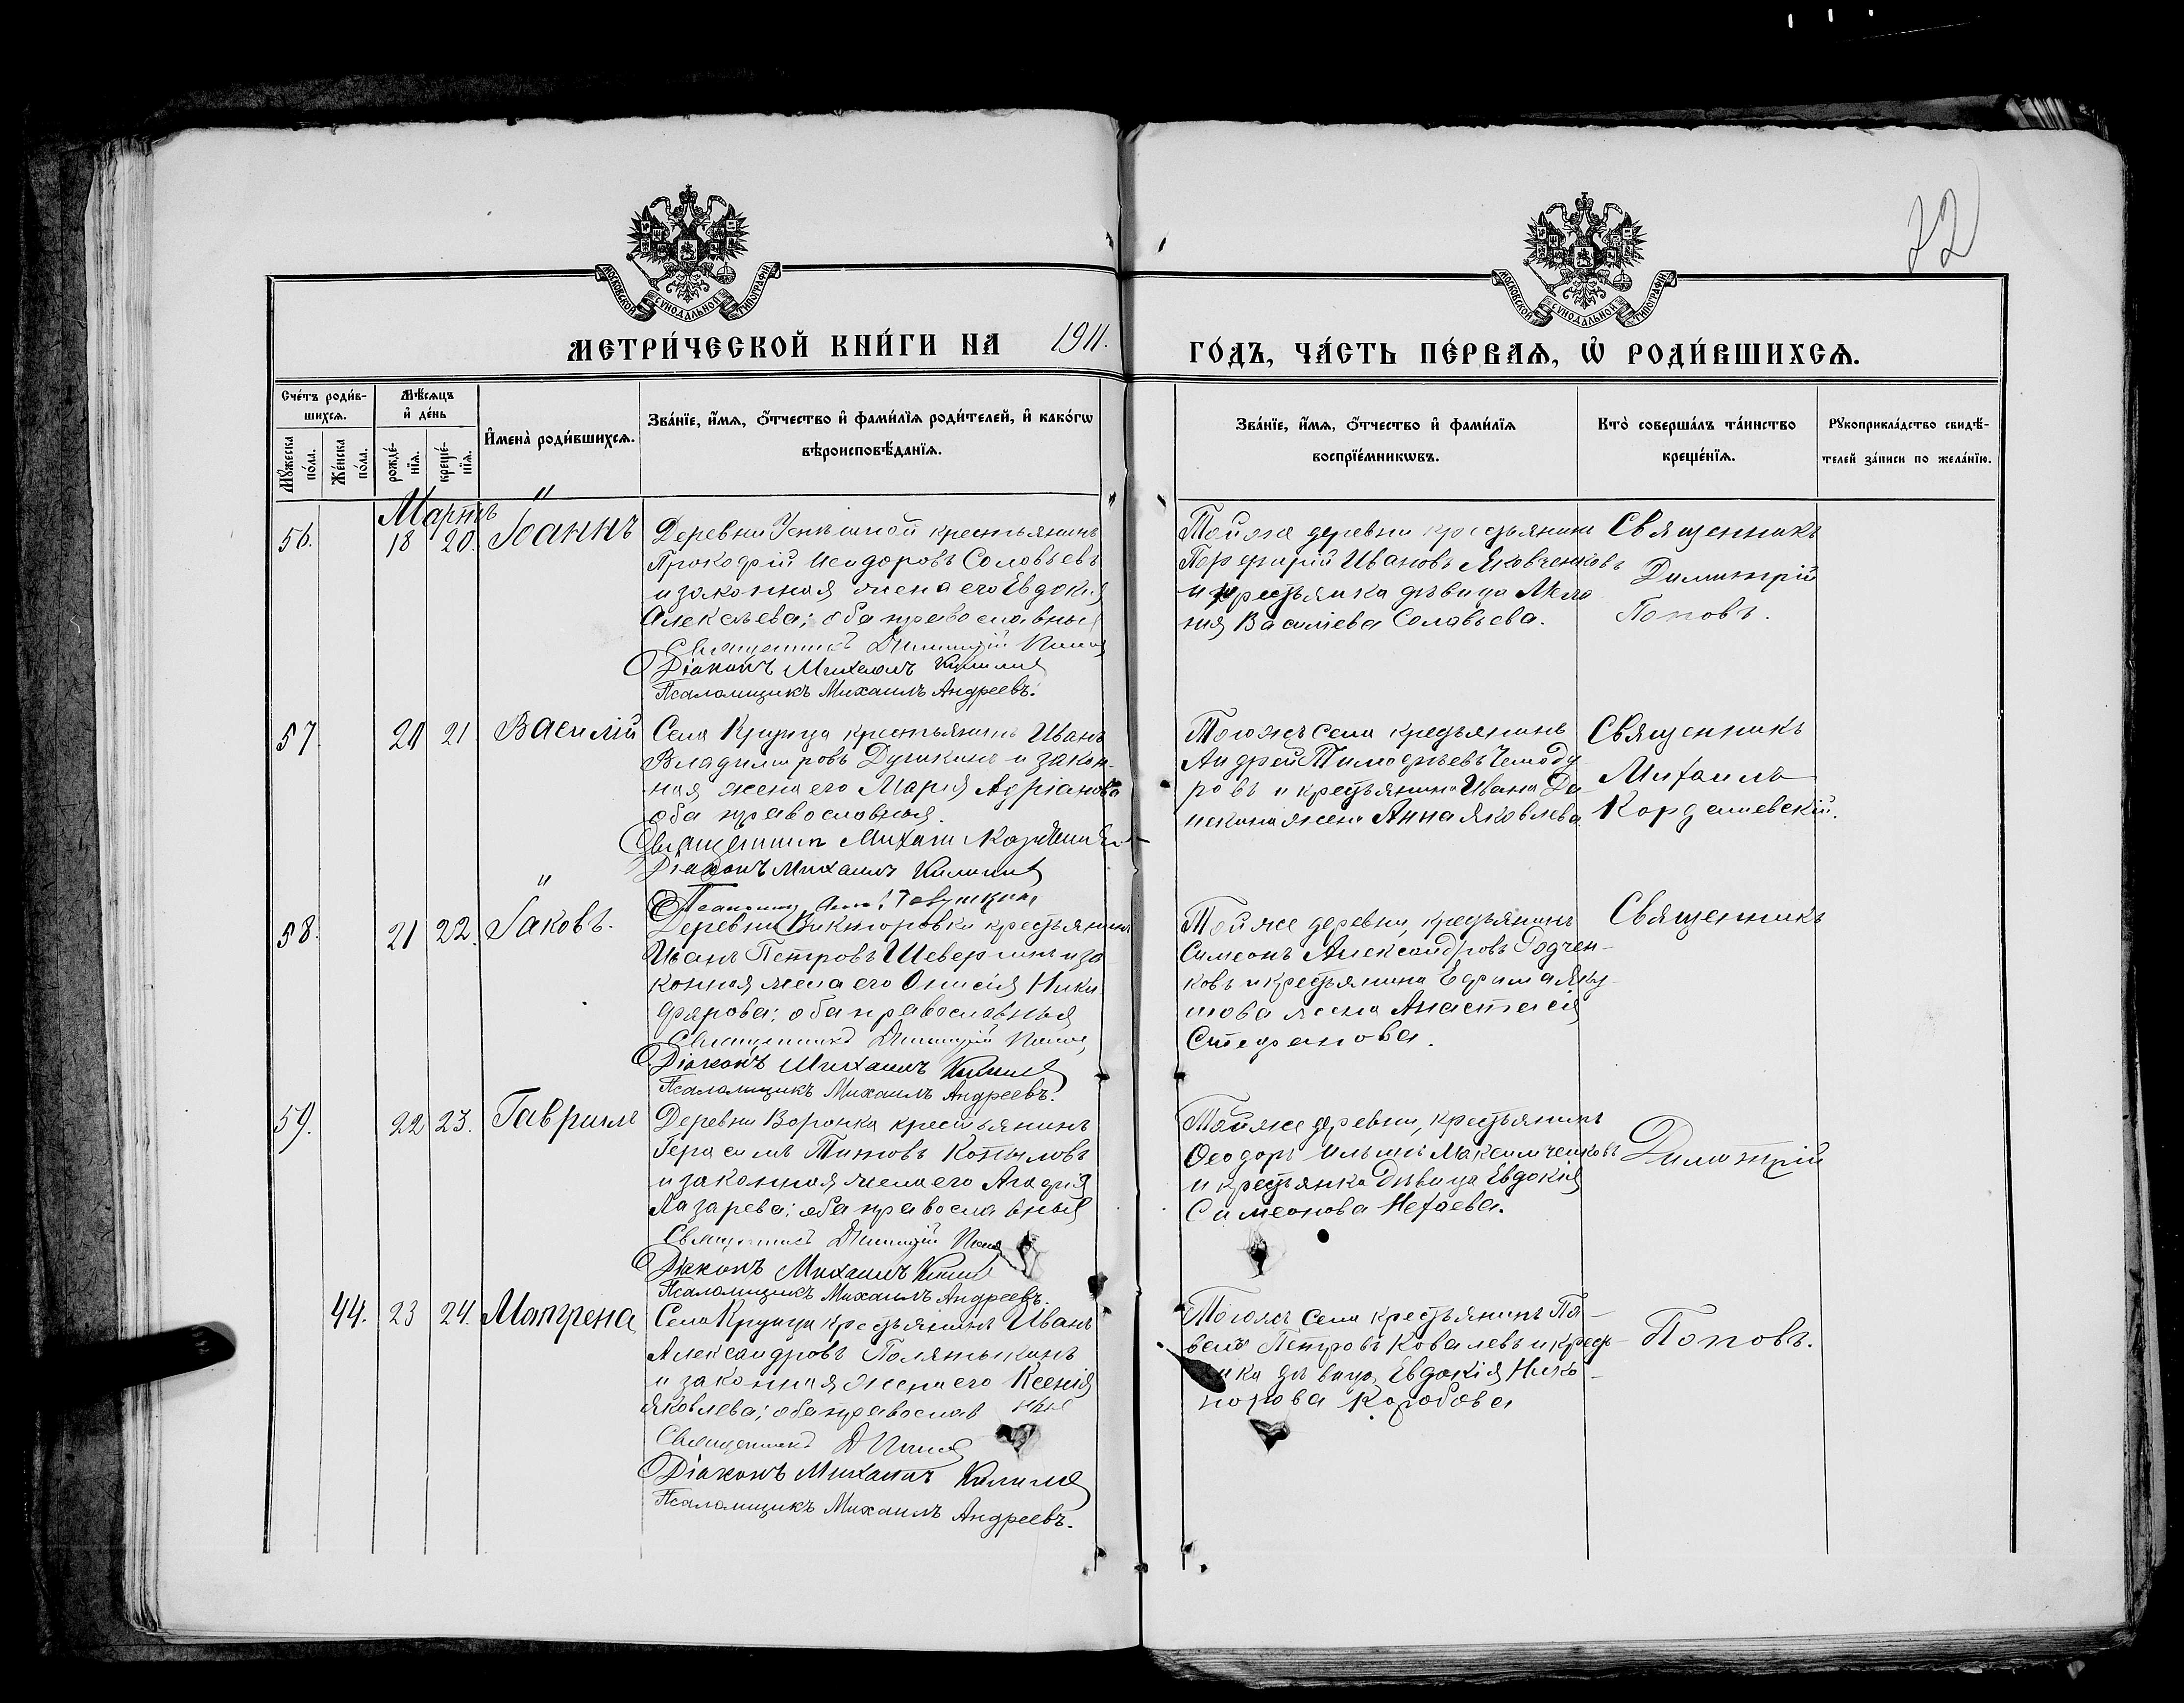 22
МОСКОВСКОЙ СѴНОДАЛЬНОЙ ТИПОГРАФІИ
МОСКОВСКОЙ СѴНОДАЛЬНОЙ ТИПОГРАФІИ
МЕТРИ́ЧЕСКОЙ КНИ́ГИ НА 1911. ГО́ДЪ, ЧА́СТЬ ПЕ́РВАѦ, Ѡ҆ РОДИ́ВШИХСѦ.
Сче́тъ роди́в-
шихсѧ.
Мѣ́сѧцъ
и҆ де́нь
Мꙋ́жеска по́ла.
Же́нска по́ла.
рожде́-
нїѧ.
креще́-
нїѧ.
И҆мена̀ роди́вшихсѧ.
Зва́нїе, и҆́мѧ, ѻ҆́тчество и҆ фами́лїѧ роди́телей, и҆ како́гѡ
вѣроисповѣ́данїѧ.
Зва́нїе, и҆́мѧ, ѻ҆́тчество и҆ фами́лїѧ
воспрїе́мникѡвъ.
Кто̀ соверша́лъ та́инство
креще́нїѧ.
Рꙋкоприкла́дство свидѣ́-
телей за́писи по жела́нїю.
Мартъ
56. 18 20. Іоаннъ
Деревни крестьянинъ
Прокофій Исидоровъ Соловьевъ
и законная жена его Евдокія
Алексѣева; оба православныя
Священникъ Димитрій Попов
Діаконъ Михаилъ
Псаломщикъ Михаилъ Андреевъ.
Тойже деревни крестьянинъ
Порфирій Ивановъ Яковченковъ
и крестьянка дѣвица
нія Васильева Соловьева.
Священникъ
Димитрій
Поповъ.
57. 20 21 Василій
Села Крупца крестьянинъ Иванъ
Владиміровъ и закон-
ная жена его Марія Адріанова
оба православныя.
Священник Михаил
Діаконъ Михаилъ
Тогожъ села крестьянинъ
Андрей Тимофѣевъ Чемоду
ровъ и крестьянина Ивана
жена Анна Яковлева.
Священникъ
Михаилъ
Кордашевскій.
58. 21 22. Іаковъ.
Деревни Викторовки крестьянинъ
Иванъ Петровъ и за
конная жена его Онисія Ники
форова; оба православныя
Священникъ Димитрій Попов
Діаконъ Михаилъ
Псаломщикъ Михаилъ Андреевъ.
Тойже деревни, крестьянинъ
Симеонъ Александровъ Годчен-
ковъ и крестьянина Ефима Яку-
шова жена Анастасія
Стефанова.
Священникъ
59. 22 23. Гавриилъ
Деревни Воронка крестьянинъ
Герасимъ Титовъ Копыловъ
и законная жена его Агафія
Лазарева; оба православныя
Священникъ Димитрій Попов
Діаконъ Михаилъ
Псаломщикъ Михаилъ Андреевъ.
Тойже деревни, крестьянинъ
Ѳеодоръ Ильинъ Максимченковъ
и крестьянка дѣвица Евдокія
Симеонова Нехаева.
Димитрій
44. 23 24. Матрена
Села Крупца крестьянинъ Иванъ
Александровъ Полятыкинъ
и законная жена его Ксенія
Яковлева; оба православ ныя
Священникъ Д Попов
Діаконъ Михаилъ
Псаломщикъ Михаилъ Андреевъ.
Тогожъ села крестьянинъ Па-
велъ Петровъ Ковалевъ и крест-
нка дѣвица, Евдокія Ника-
норова Коробова
Поповъ.